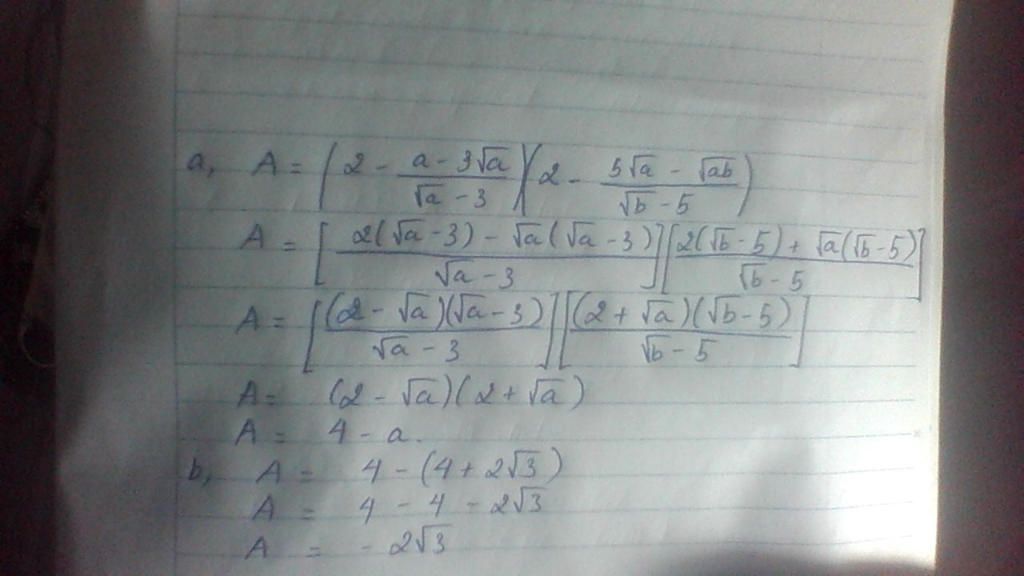 a, A = (2 - (a - 3√a)/(√a - 3))(2 - (5√a - √ab)/(√b - 5))
A = [(2(√a - 3) - √a(√a - 3))/(√a - 3)][(2(√b - 5) + √a(√b - 5))/(√b - 5)]
A = [((2 - √a)(√a - 3))/(√a - 3)][((2 + √a)(√b - 5))/(√b - 5)]
A = (2 - √a)(2 + √a)
A = 4 - a.
b, A = 4 - (4 + 2√3)
A = 4 - 4 - 2√3
A = - 2√3